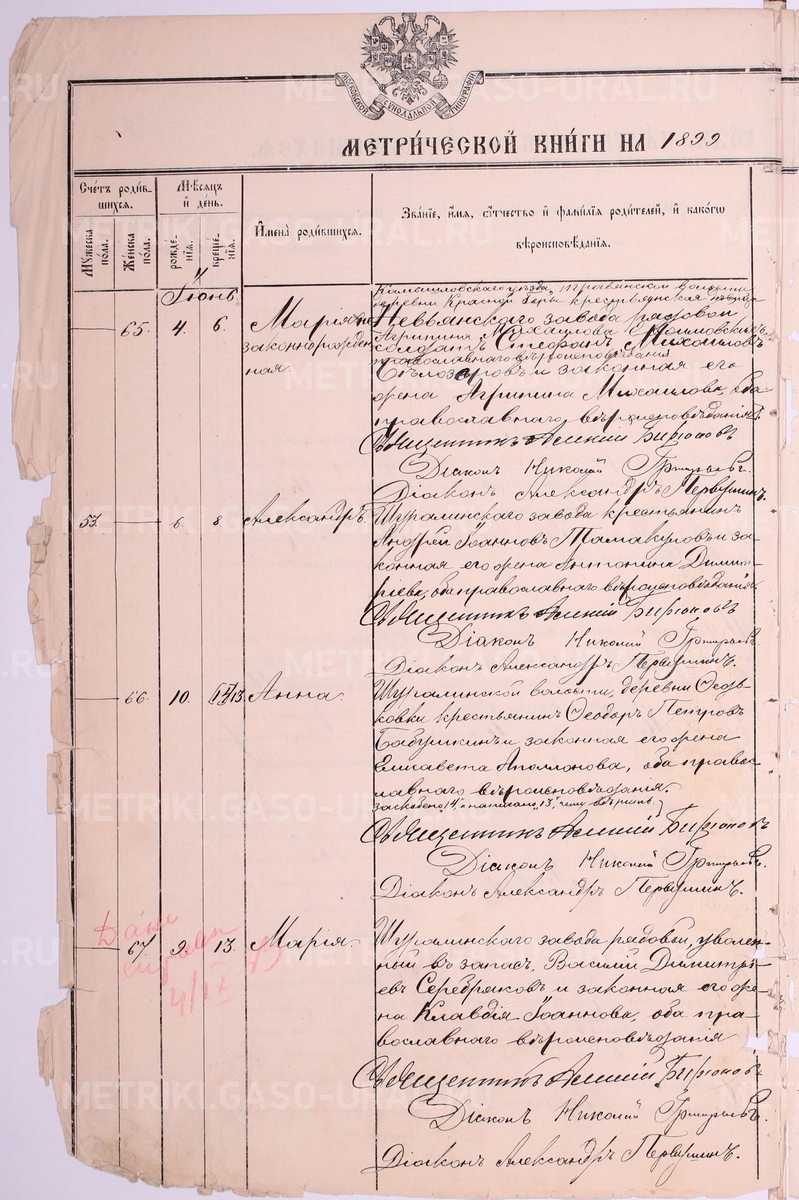 МОСКОВСКОЙ СѴНОДАЛЬНОЙ ТИПОГРАФІИ
МЕТРИ́ЧЕСКОЙ КНИ́ГИ НА 1899
Счетъ роди́вшихся.
Мꙋжеска пола.
Женска пола.
Мѣсяцъ и҆ день.
рожденія.
крещенія.
И҆мена̀ роди́вшихся.
Зва́ніе, и҆́мя, ѻ҆́тчество и҆ фами́лія роди́телей, и҆ како́гѡ
вѣроисповѣ́данія.
Іюнь
65. 4. 6. Марія
законнорожден
ная.
Камышловскаго уѣзда, волости
деревни Красной Горы крестьянская
Невьянскаго завода рядовой
Агрипина Михайлова
солдатъ Стефанъ Михайловъ
православнаго вѣроисповѣданія
Бѣлозеровъ и законная его
жена Агрипина Михайлова, оба
православнаго вѣроисповѣданія.
Священникъ Алексій Бирюковъ
Діаконъ Николай Григорьевъ.
Діаконъ Александръ Первушинъ.
53. 6. 8. Александръ.
Шуралинскаго завода крестьянинъ
Андрей Іоанновъ Тамакуловъ и за-
конная его жена Антонина Димит-
ріева, оба православнаго вѣроисповѣданія.
Священникъ Алексій Бирюковъ
Діаконъ Николай Григорьевъ.
Діаконъ Александръ Первушинъ.
66. 10. 14 13. Анна.
Шуралинской волости, деревни Ѳедь-
ковки крестьянинъ Ѳеодоръ Петровъ
Бабушкинъ и законная его жена
Елисавета Аполлонова, оба правос-
лавнаго вѣроисповѣданія.
написано "13" чему вѣрить
Священникъ Алексій Бирюковъ
Діаконъ Николай Григорьевъ.
Діаконъ Александръ Первушинъ.
67. 9. 13. Марія.
Шуралинскаго завода рядовой, уволен-
ный въ запасъ, Василій Димитрі-
евъ Серебряковъ и законная его же-
на Клавдія Іоаннова, оба пра-
вославнаго вѣроисповѣданія
Священникъ Алексій Бирюковъ
Діаконъ Николай Григорьевъ.
Діаконъ Александръ Первушинъ.
METRIKI.GASO-URAL.RU